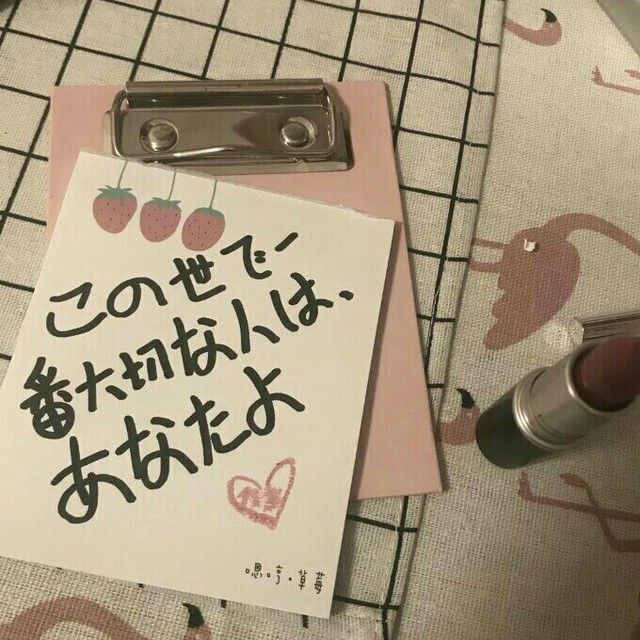 この世で一
番大切な人は、
あなたよ
嗯亏.草莓